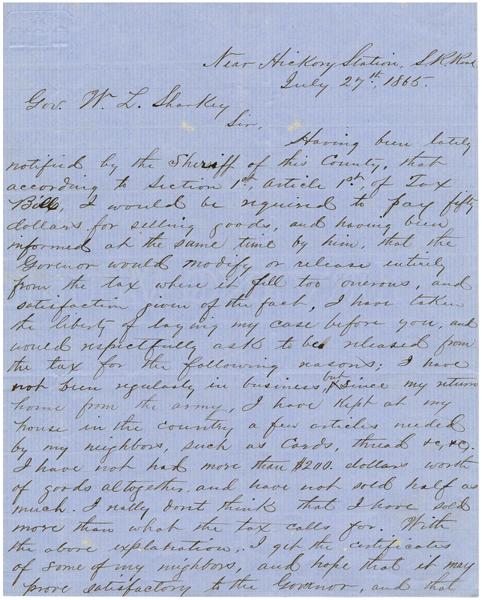 Near Hickory Station, S.R.Road
July 27th, 1865.
Gov. W. L. Sharkey
Sir,
Having been lately
notified by the Sheriff of this County, that
according to Section 1st, Article 1st, of Tax
Bill, I would be required to pay fifty
dollars for selling goods, and having been
informed at the same time by him, that the
Govenor would modify or release entirely
from the tax where it fell too onerous, and
satisfaction given of the fact, I have taken
the liberty of laying my case before you, and
would respectfully ask to be released from
the tax for the following reasons; I have
not been regularly in business, but since my return
home from the army, I have kept at my
house in the country a few articles needed
by my neighbors, such as Cards, thread &c, &c,
I have not had more than $200. dollars worth
of goods altogether, and have not sold half as
much. I really don't think that I have sold
more than what the tax calls for. With
the above explanation, I get the certificates
of some of my neighbors, and hope that it may
prove satisfactory to the Govenor, and that